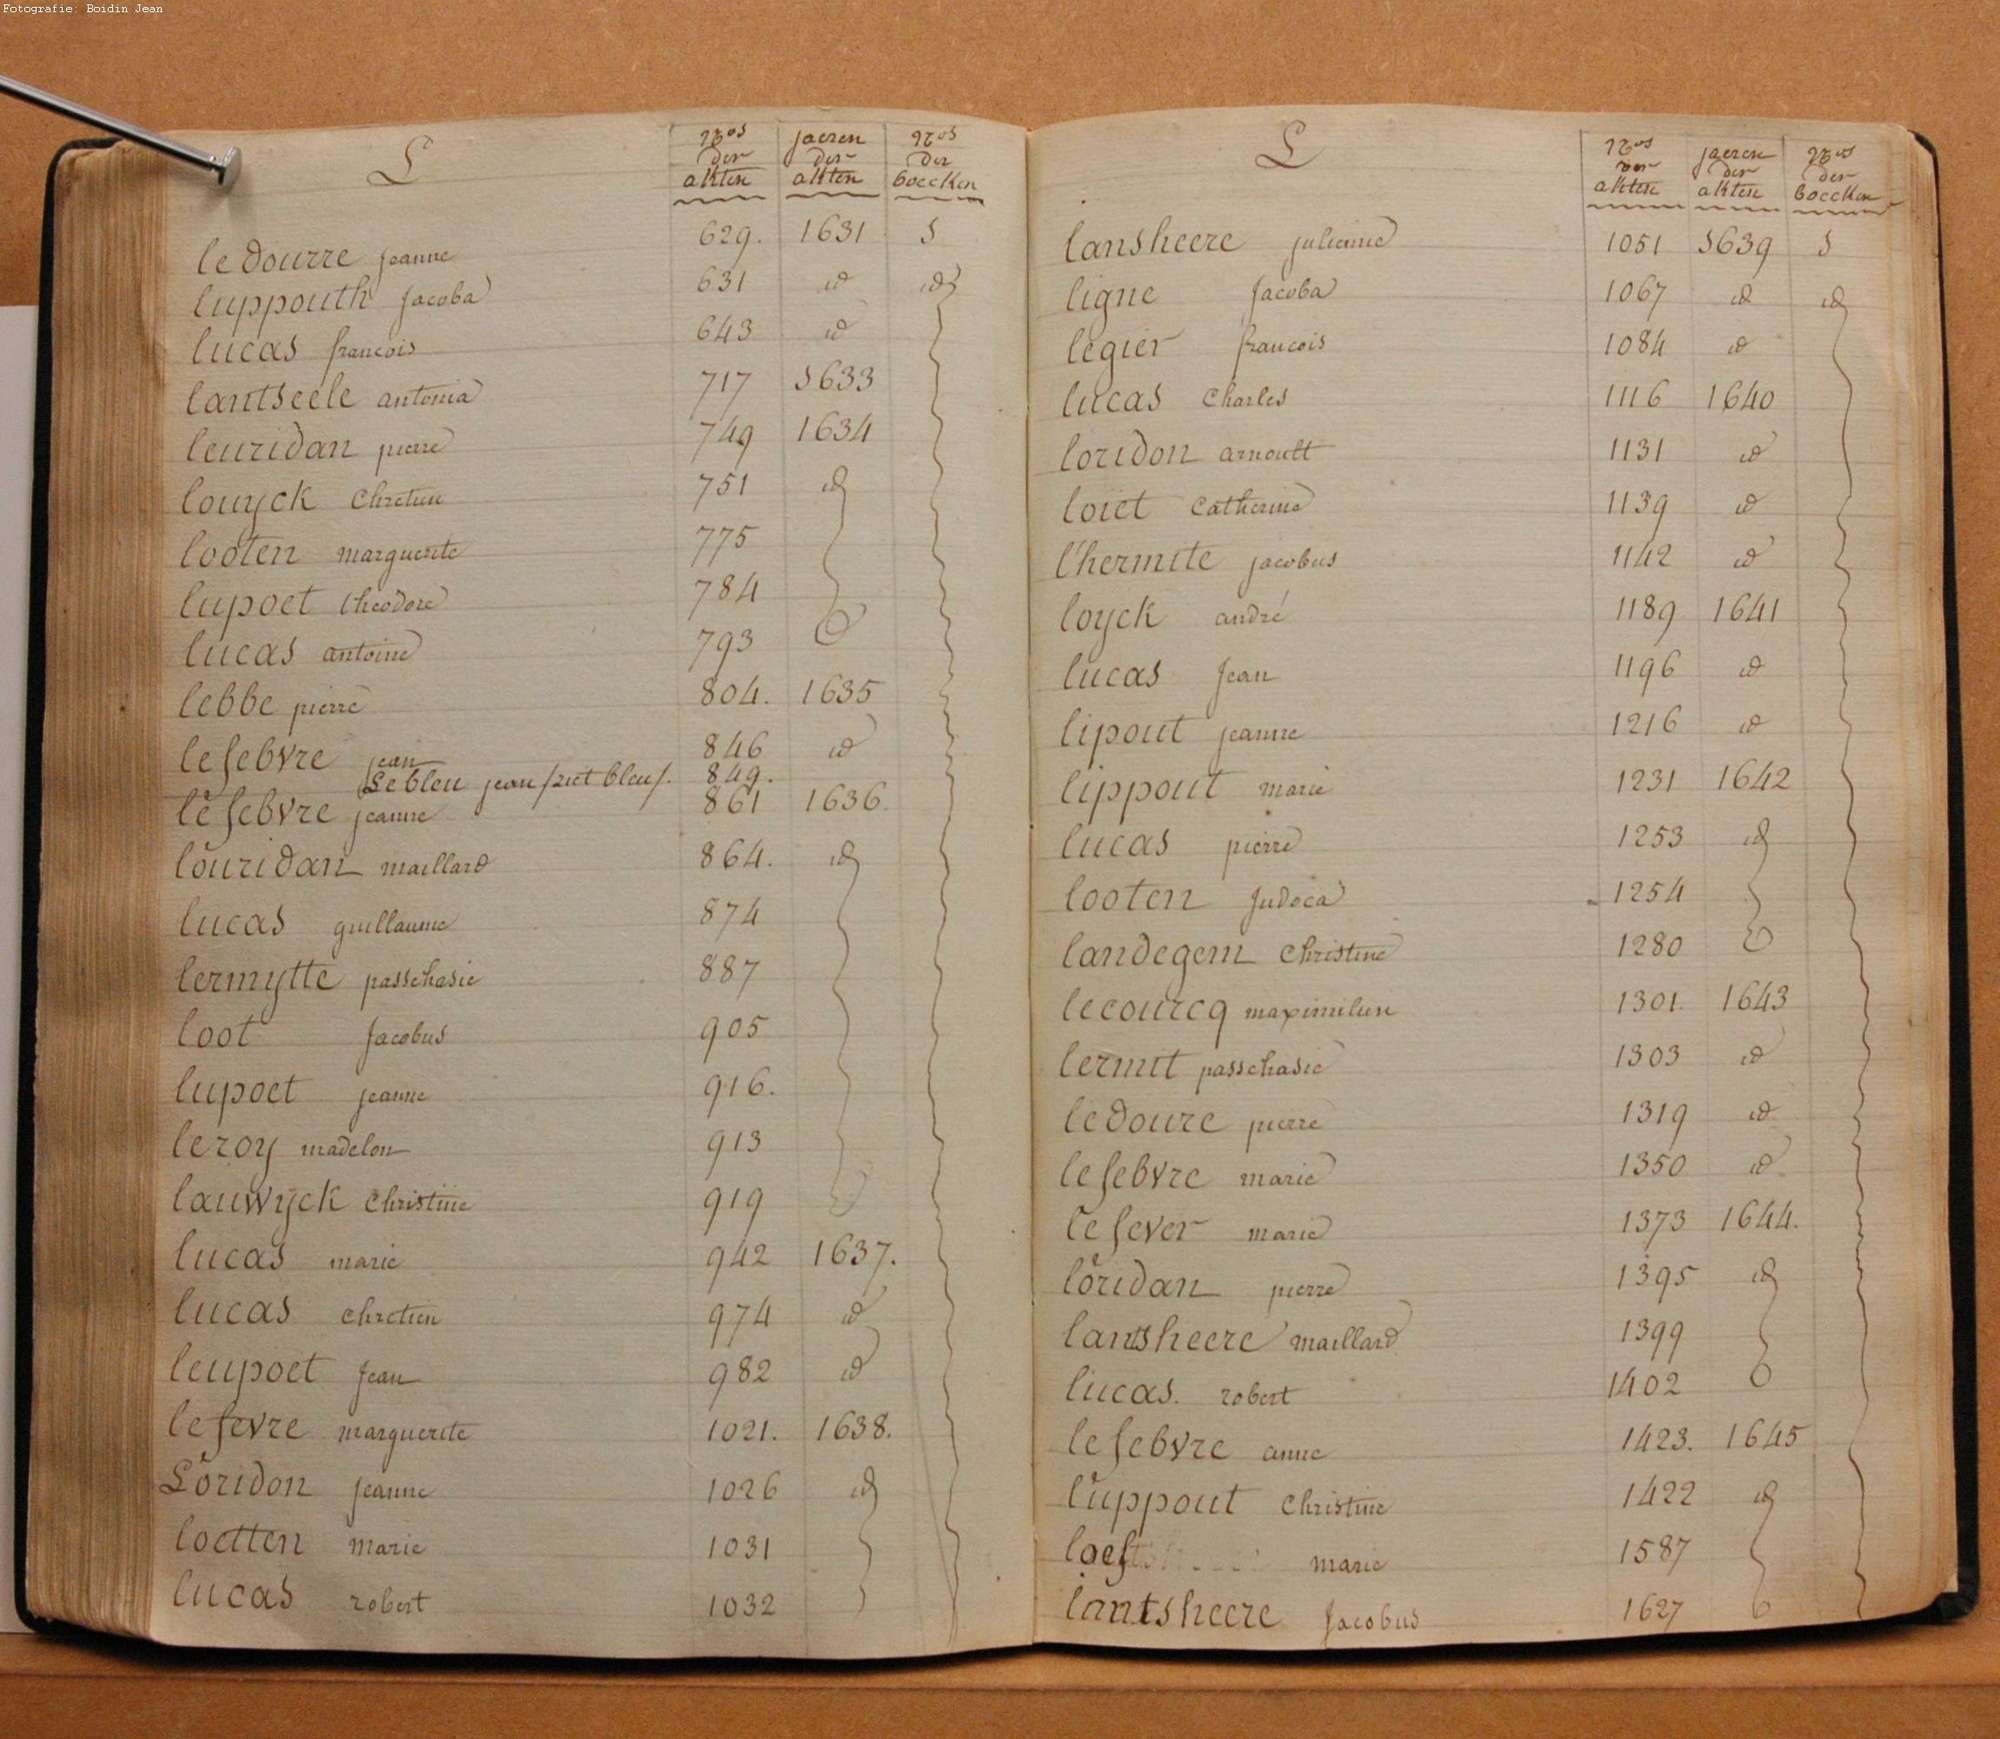 Fotografie: Boidin Jean
L
Nos der akten
jaeren der akten
Nos der boecken
ledourre jeanne 629. 1631 5
luppouth jacoba 631 id id
lucas francois 643 id
lantseele antonia 717 1633
leuridan pierre 749 1634
louyck Chretien 751 id
looten marguerite 775
lupoet theodore 784
lucas antoine 793
lebbe pierre 804. 1635
lefebvre jean 846 id
Lebleu jean /niet bleu/. 849.
lefebvre jeanne 861 1636.
louridan maillard 864. id
lucas guillaume 874
lermytte passchasie 887
loot jacobus 905
lupoet jeanne 916.
leroy madelon 913
lauwyck Christine 919
lucas marie 942 1637.
lucas chretien 974 id
leupoet jean 982 id
lefevre marguerite 1021. 1638.
Loridon jeanne 1026 id
loetten marie 1031
lucas robert 1032
L
Nos der akten
jaeren der akten
Nos der boecken
lansheere julienne 1051 1639 5
ligne jacoba 1067 id id
legier francois 1084 id
lucas Charles 1116 1640
loridon arnoult 1131 id
loiet Catherine 1139 id
l'hermite jacobus 1142 id
loyck andré 1189 1641
lucas jean 1196 id
lipout jeanne 1216 id
lippout marie 1231 1642
lucas pierre 1253 id
looten judoca 1254
landegem Christine 1280
lecourcq maximilien 1301. 1643
lermit passchasie 1303 id
ledoure pierre 1319 id
lefebvre marie 1350 id
lefever marie 1373 1644.
loridan pierre 1395 id
lantsheere maillard 1399
lucas. robert 1402
lefebvre anne 1423. 1645
luppout Christine 1422 id
marie 1587
lantsheere jacobus 1627